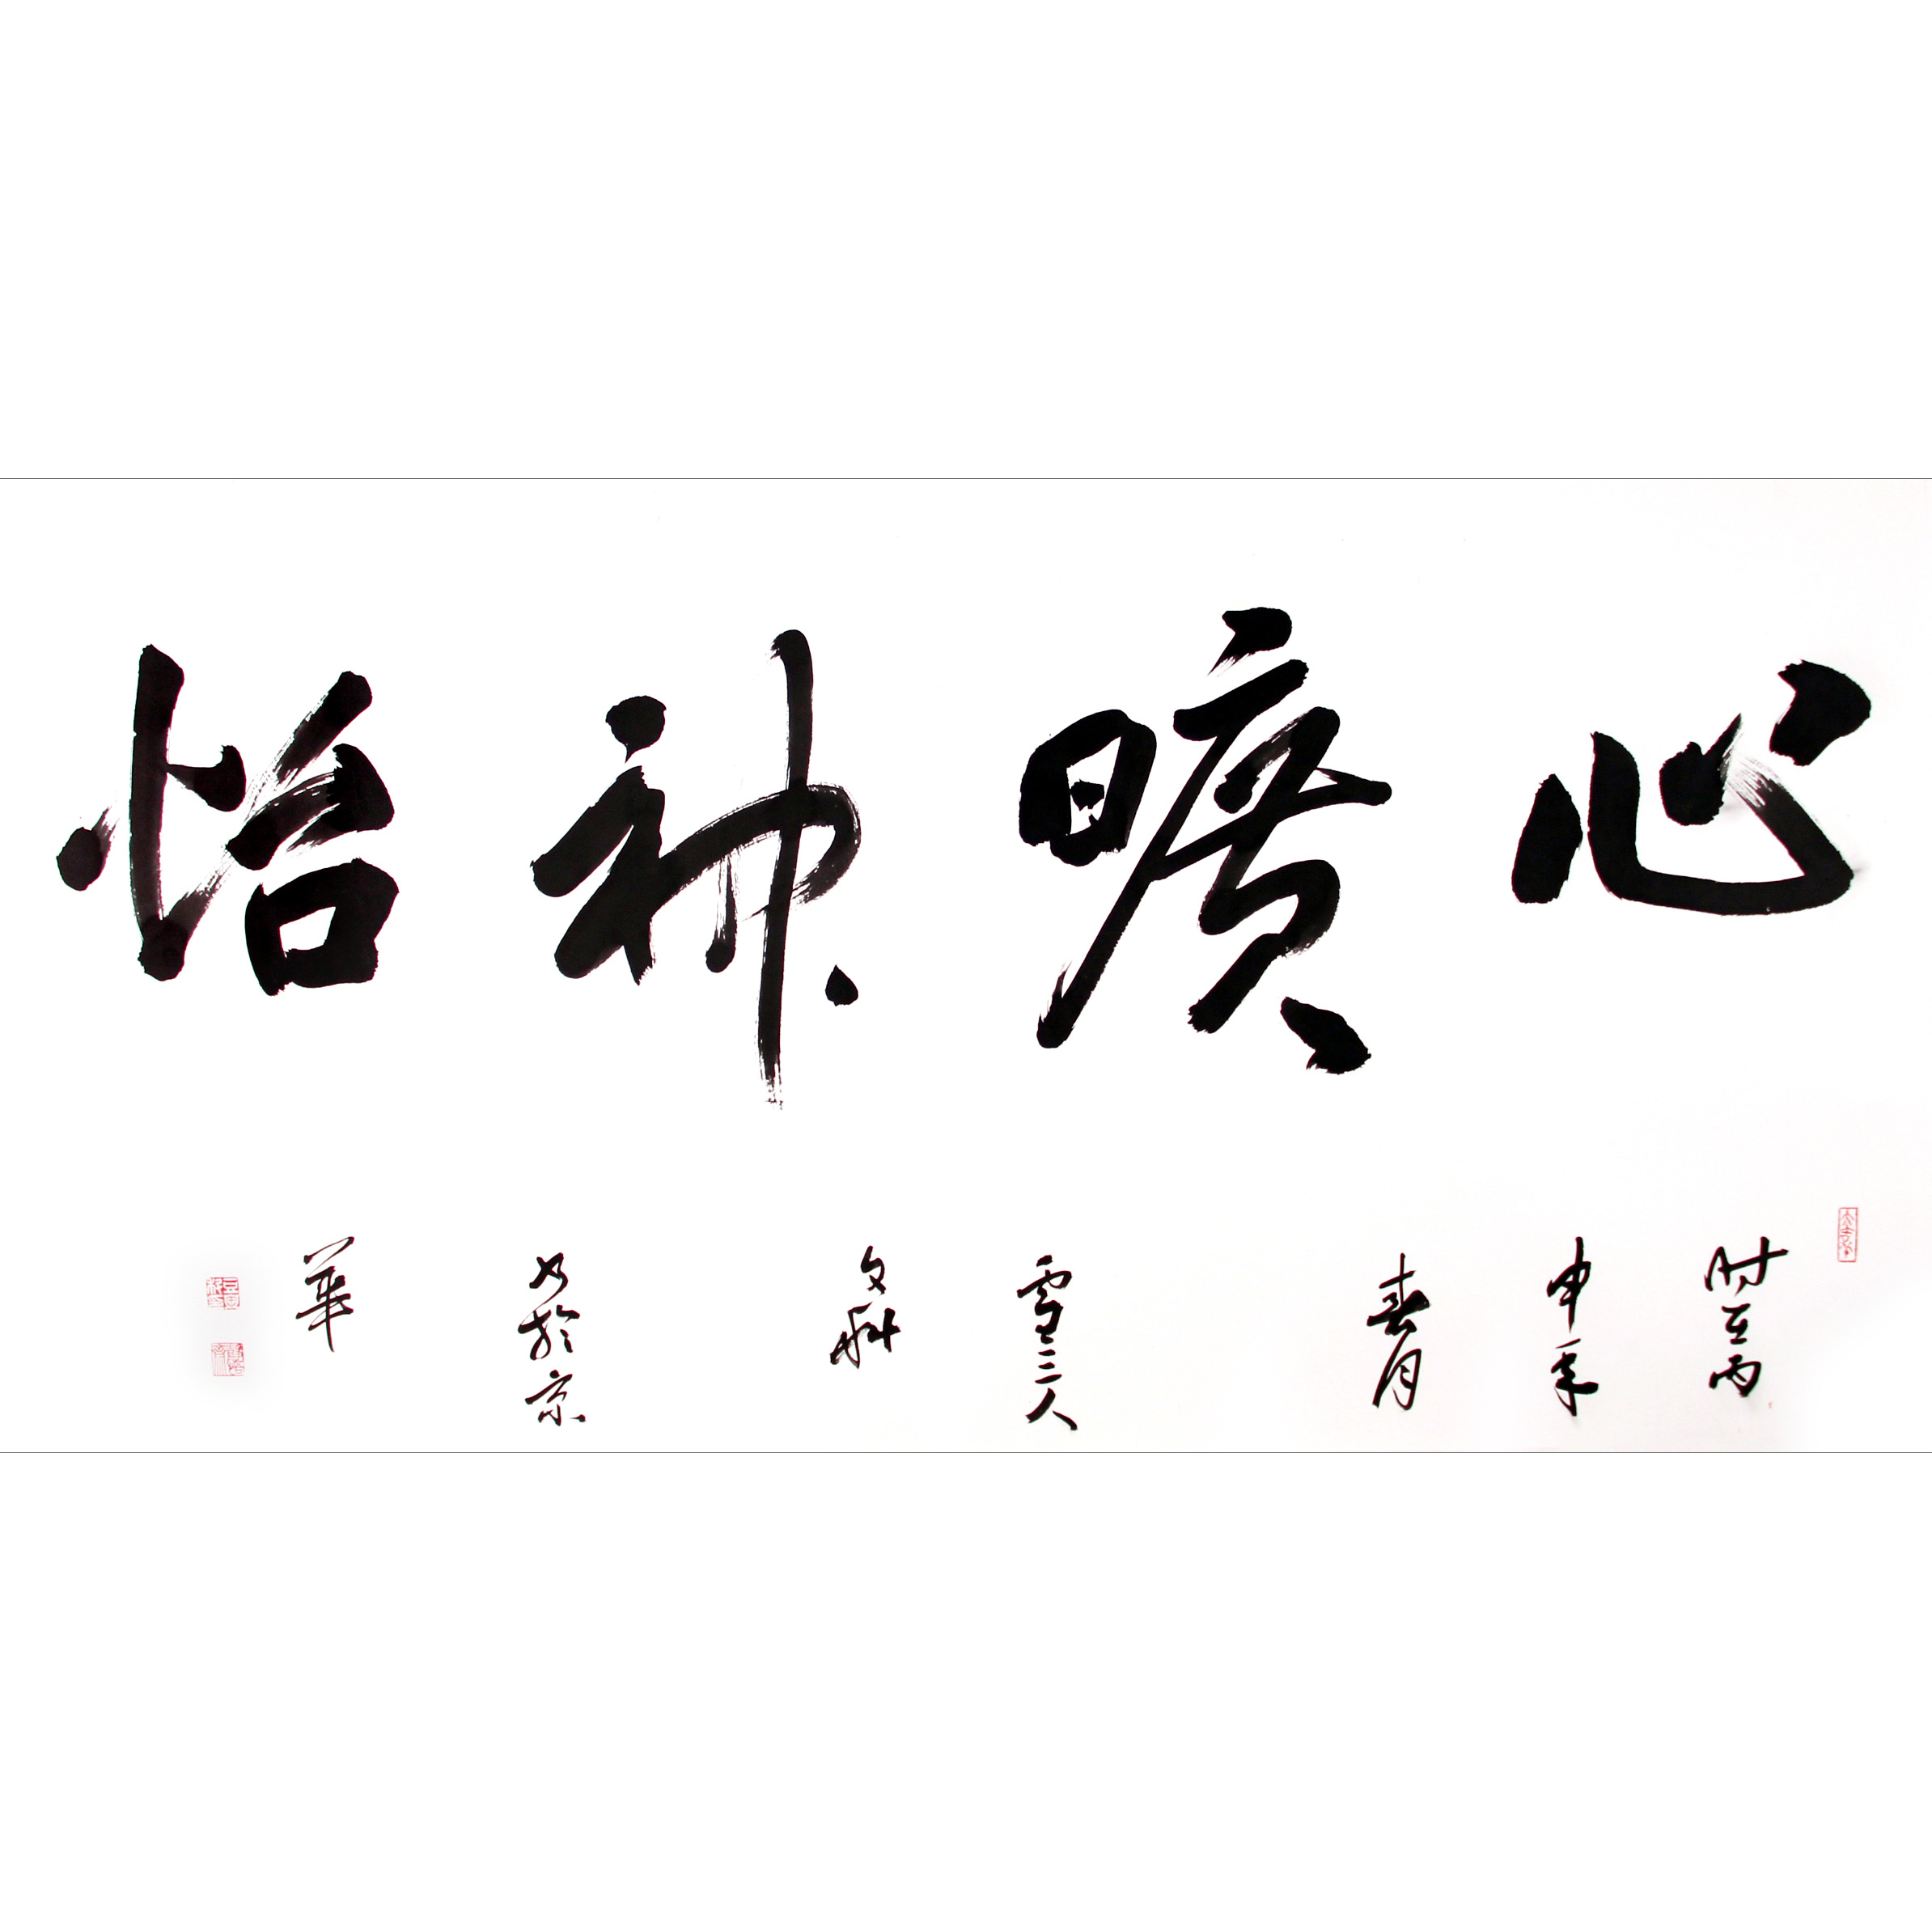 心曠神怡
时在丙
申年
春月
雪三人
文科
書於京
華